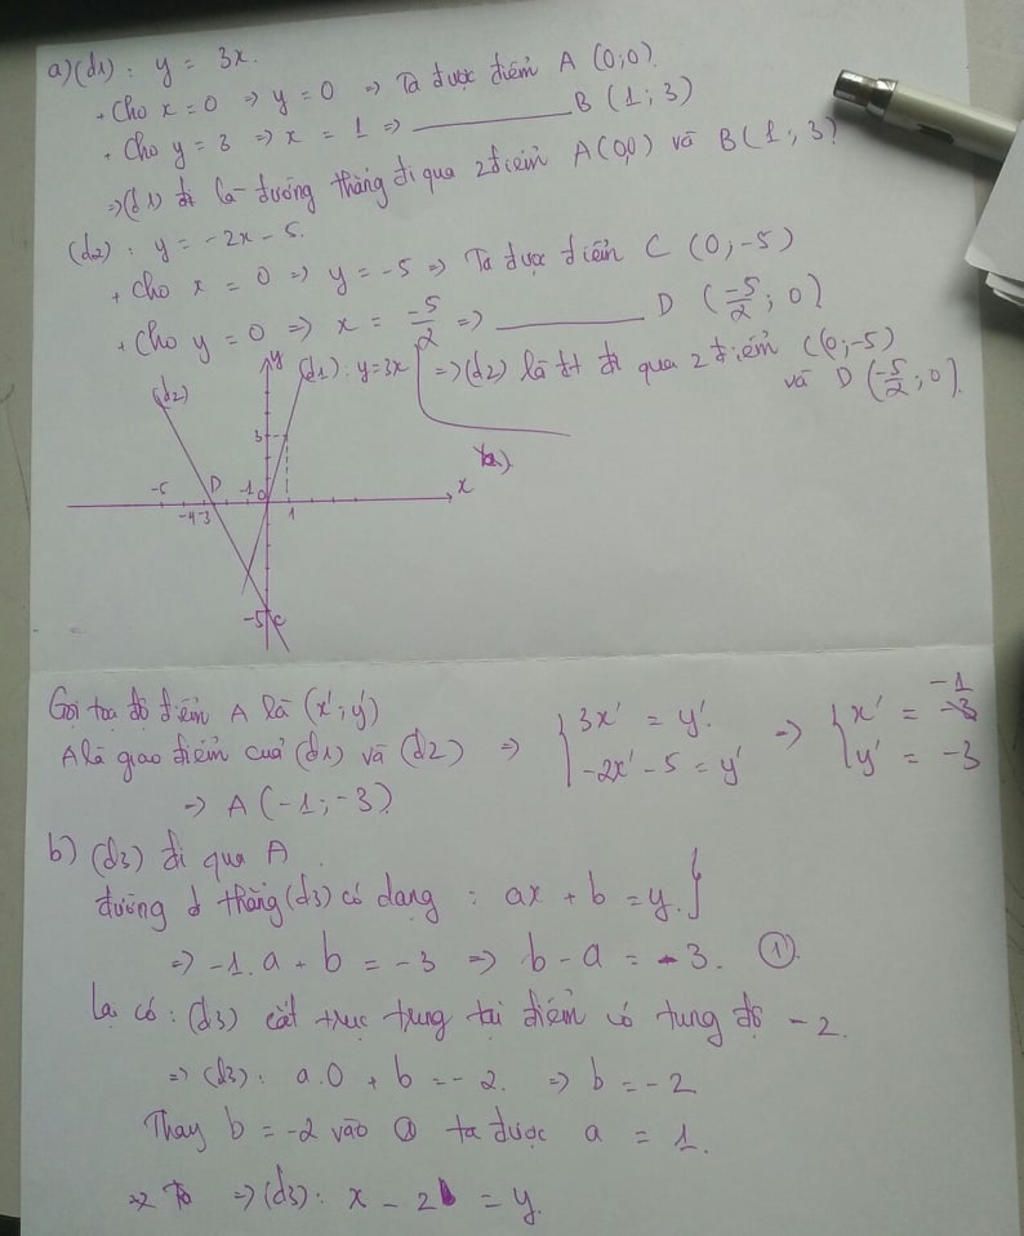 a) (d1) : y = 3x.
+ Cho x = 0 => y = 0 => Ta được điểm A (0;0).
+ Cho y = 3 => x = 1 => ________ B (1; 3)
=> (d1) là đường thẳng đi qua 2 điểm A(0,0) và B(1; 3)
(d2) : y = -2x - 5.
+ Cho x = 0 => y = -5 => Ta được điểm C (0; -5)
+ Cho y = 0 => x = -5/2 => ________ D (-5/2; 0)
=> (d2) là đt đi qua 2 điểm C(0; -5)
và D (-5/2; 0).
y
(d1) : y = 3x
(d2)
3
-5
D
-1
O
x
-4 -3
1
-5
C
Gọi tọa độ điểm A là (x'; y')
A là giao điểm của (d1) và (d2) => { 3x' = y'. -2x' - 5 = y' => { x' = -1 y' = -3
=> A (-1; -3)
b) (d3) đi qua A.
đường thẳng (d3) có dạng : ax + b = y. }
=> -1. a + b = -3 => b - a = -3. ①.
Lại có : (d3) cắt trục tung tại điểm có tung độ -2.
=> (d3) : a.0 + b = -2. => b = -2
Thay b = -2 vào ① ta được a = 1.
=> (d3) : x - 2 = y.